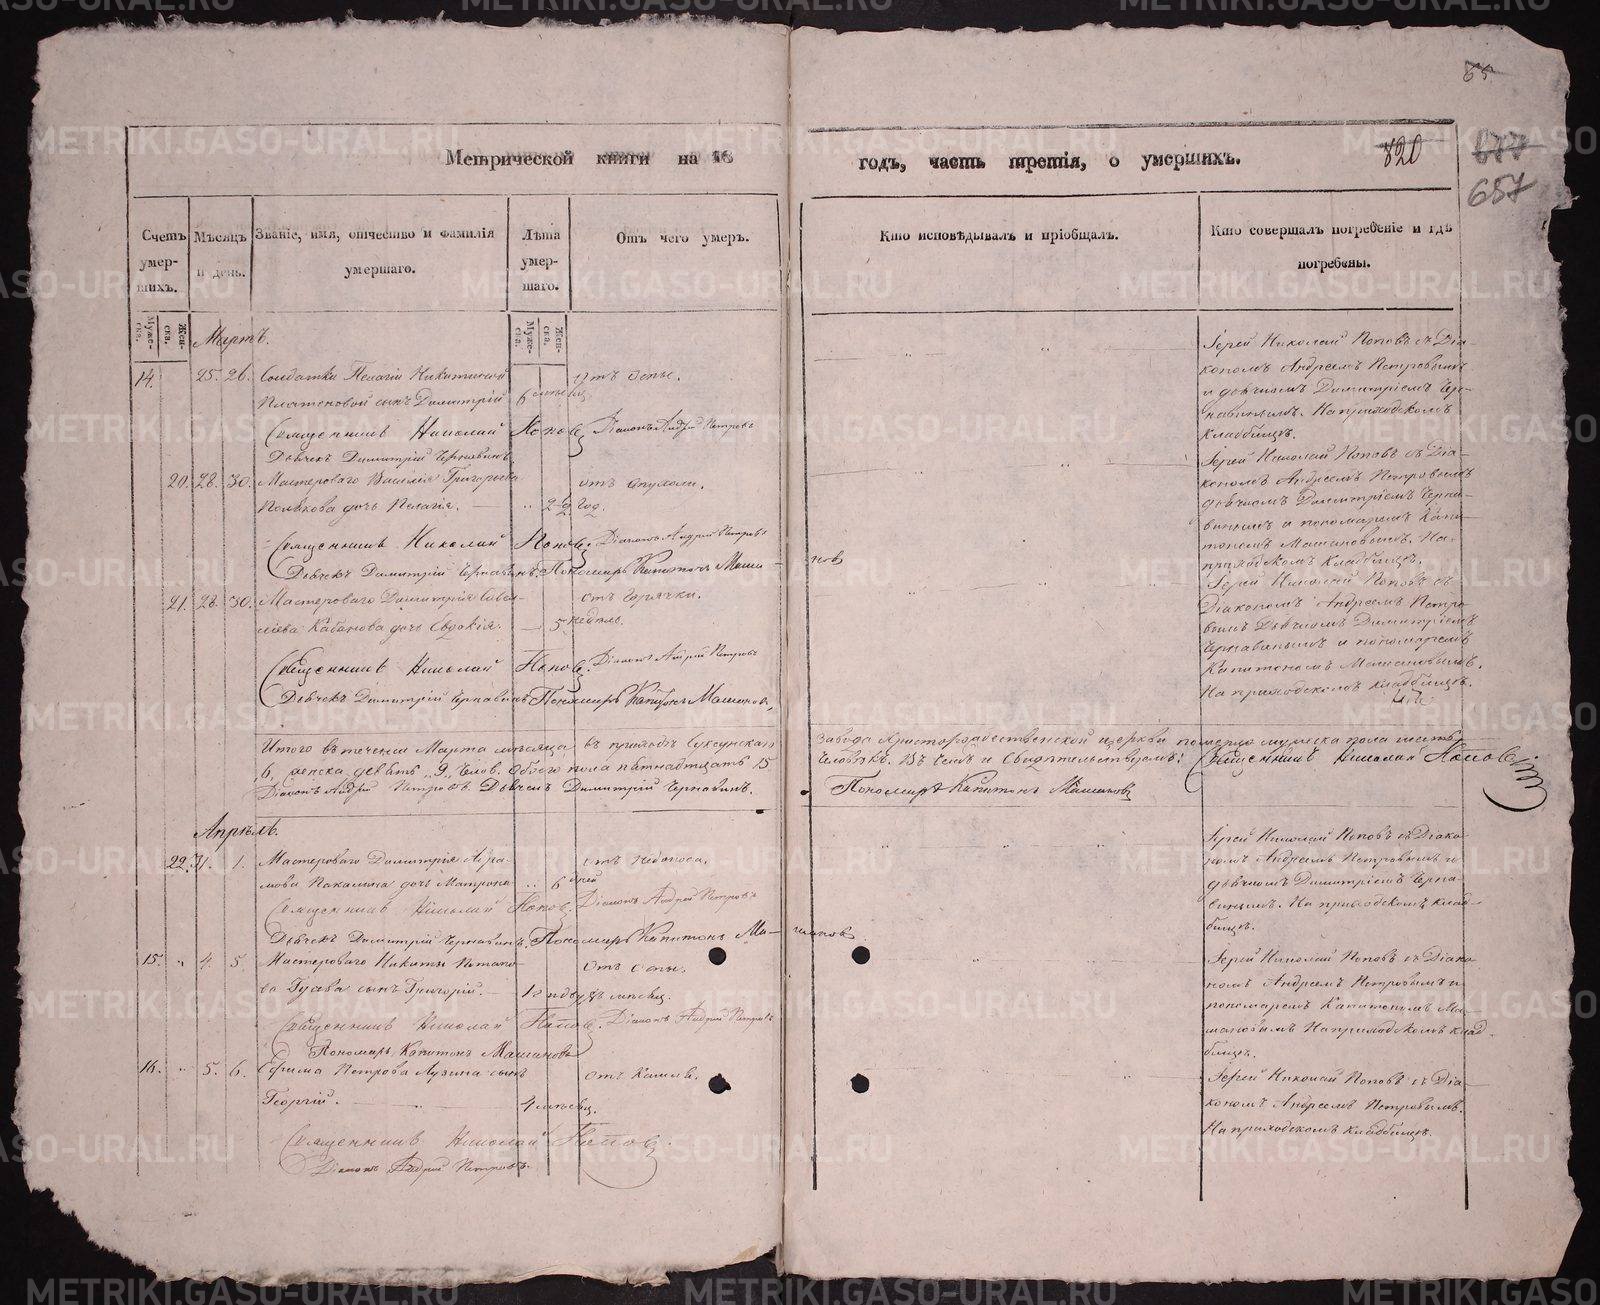 65
Метрической книги на 18
годъ, часть третія, о умершихъ.
820
677
657
Счетъ умер-шихъ.
Мѣсяцъ и день.
Званіе, имя, отчество и фамилія умершаго.
Лѣта умер-шаго.
Отъ чего умеръ.
Кто исповѣдывалъ и пріобщалъ.
Кто совершалъ погребеніе и гдѣ погребены.
Муже-ска.
Жен-ска.
Муже-ска.
Жен-ска.
Мартъ.
14. 25. 26. Солдатки Пелагіи Никитиной
сынъ Димитрій 6
отъ оспы.
Іерей Николай Поповъ съ Діа-
кономъ Андреемъ Петровымъ
и дьячкомъ Димитріемъ Чер-
навинымъ. На приходскомъ
кладбищѣ.
Священникъ Николай Поповъ. Діаконъ Андрей Петровъ
Дьячекъ Димитрій Чернавинъ.
20. 28. 30. Мастероваго Василія Григорьева
Полякова дочь Пелагія.
год.
отъ опухоли.
Іерей Николай Поповъ съ Діа-
кономъ Андреемъ Петровымъ
дьячкомъ Димитріемъ Черна-
винымъ и пономаремъ Капи-
тономъ Машановымъ. На
приходскомъ кладбищѣ.
Священникъ Николай Поповъ. Діаконъ Андрей Петровъ
Дьячекъ Димитрій Чернавинъ. Пономарь Капитонъ Маша-
новъ
21. 28. 30. Мастероваго Димитрія Саве-
ліева Кабанова дочь Евдокія. 5 недѣль.
отъ горячки.
Іерей Николай Поповъ съ
Діакономъ Андреемъ Петро-
вымъ Дьячкомъ Димитріемъ
Чернавинымъ и пономаремъ
Капитономъ Машановымъ.
На приходскомъ кладбищѣ.
Священникъ Николай Поповъ. Діаконъ Андрей Петровъ
Дьячекъ Димитрій Чернавинъ. Пономарь Капитонъ Машановъ.
Итого въ теченіи Марта мѣсяца въ приходѣ Суксунскаго
завода Христорождественской церкви померло мужеска пола шесть
6, женска девять 9. Челов. обоего пола пятнадцать 15
человѣкъ. Въ чемъ и свидѣтельствуемъ: Священникъ Николай Поповъ
Діаконъ Андрей Петровъ. Дьячекъ Димитрій Чернавинъ.
Пономарь Капитонъ Машановъ
Апрѣль.
22. 31. 1. Мастероваго Димитрія Авра-
мова дочь Матрона 6 дней
отъ недоноса.
Іерей Николай Поповъ съ Діако-
номъ Андреемъ Петровымъ и
дьячкомъ Димитріемъ Черна-
винымъ. На приходскомъ клад-
бищѣ.
Священникъ Николай Поповъ. Діаконъ Андрей Петровъ
Дьячекъ Димитрій Чернавинъ. Пономарь Капитонъ Ма-
шановъ
15. " 4. 5. Мастероваго Никиты Потапо-
ва Гусева сынъ Григорій.
отъ оспы.
Іерей Николай Поповъ съ Діако-
номъ Андреемъ Петровымъ и
пономаремъ Капитономъ Ма-
шановымъ На приходскомъ клад-
бищѣ.
Священникъ Николай Поповъ. Діаконъ Андрей Петровъ
Пономарь Капитонъ Машановъ
16. " 5. 6. Ефима Петрова Лузина сынъ
Георгій. 4 мѣсяц.
отъ кашля.
Іерей Николай Поповъ съ Діа-
кономъ Андреемъ Петровымъ.
На приходскомъ кладбищѣ.
Священникъ Николай Поповъ.
Діаконъ Андрей Петровъ.
METRIKI.GASO-URAL.RU